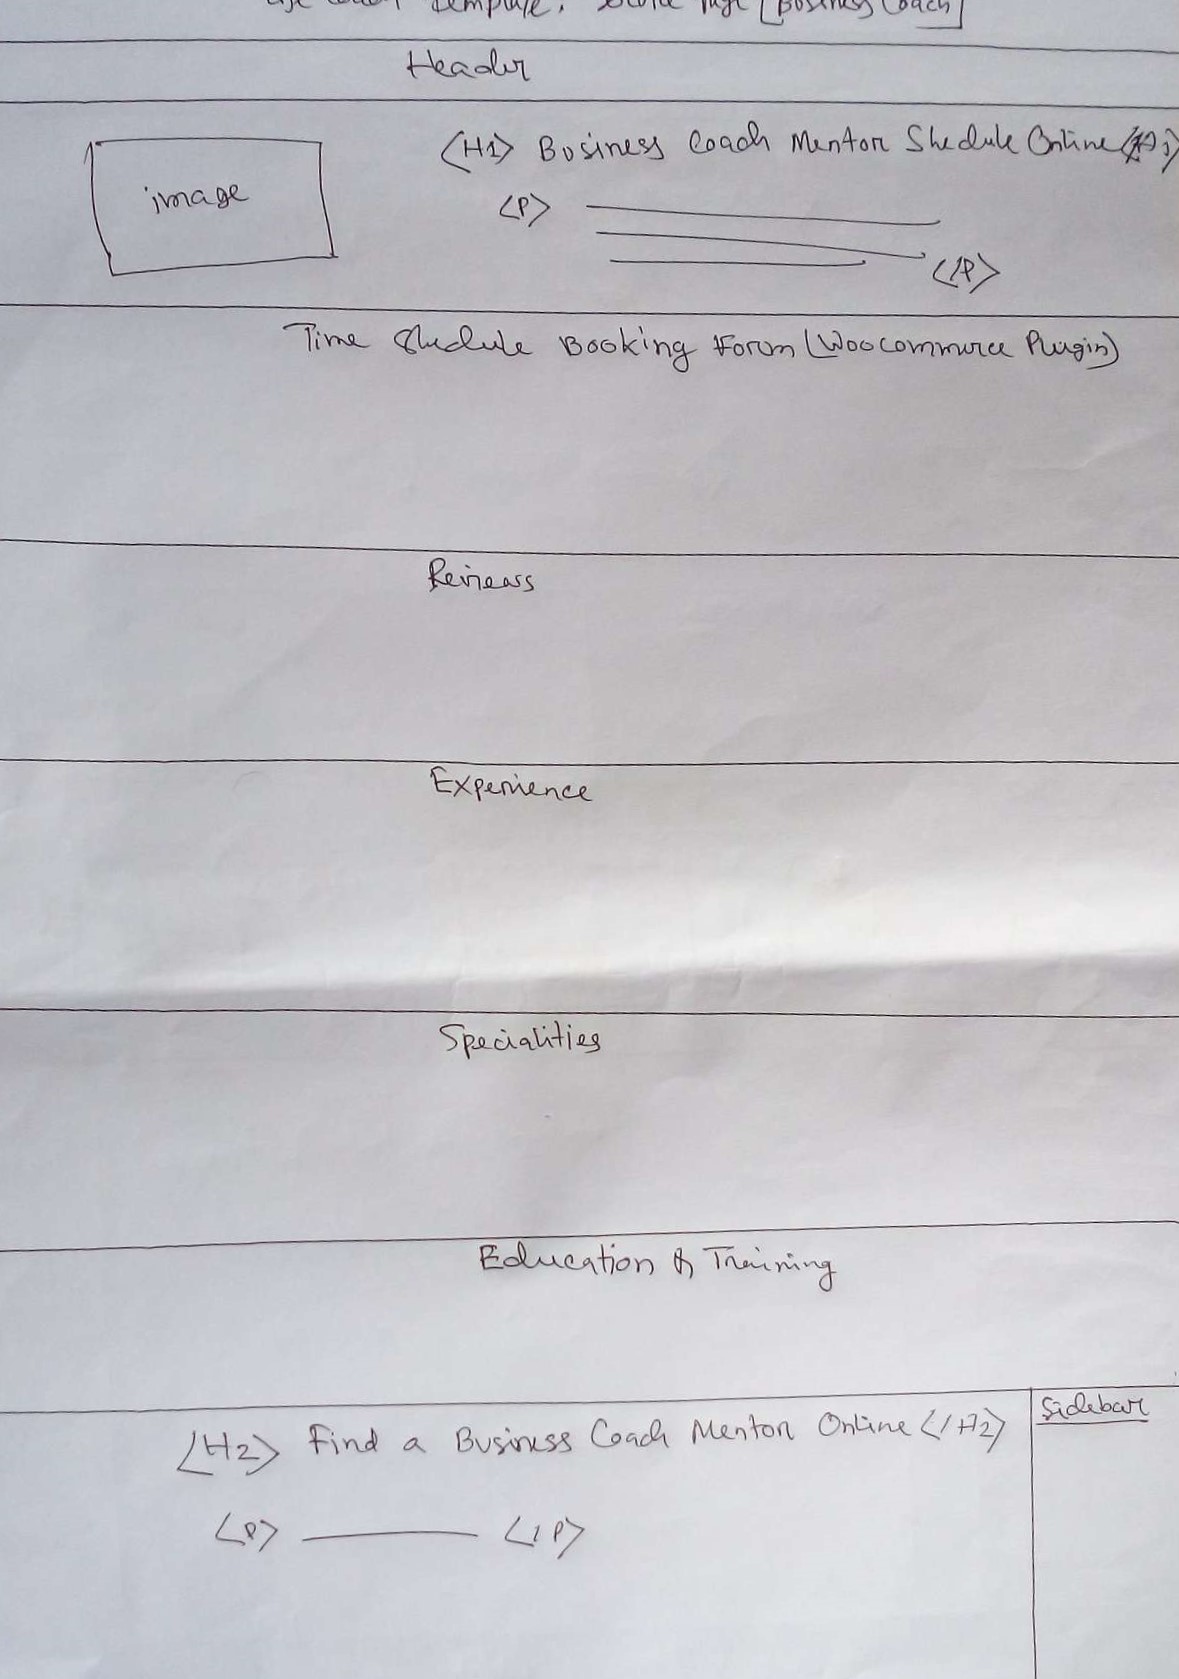 Template, Service Page [Business Coach]
Header
image
<H1> Business Coach Mentor Shedule Online
<P>
</P>
Time Shedule Booking Form (Woocommerce Plugin)
Reviews
Experience
Specialities
Education & Training
<H2> Find a Business Coach Mentor Online </H2>
Sidebar
<P> </P>